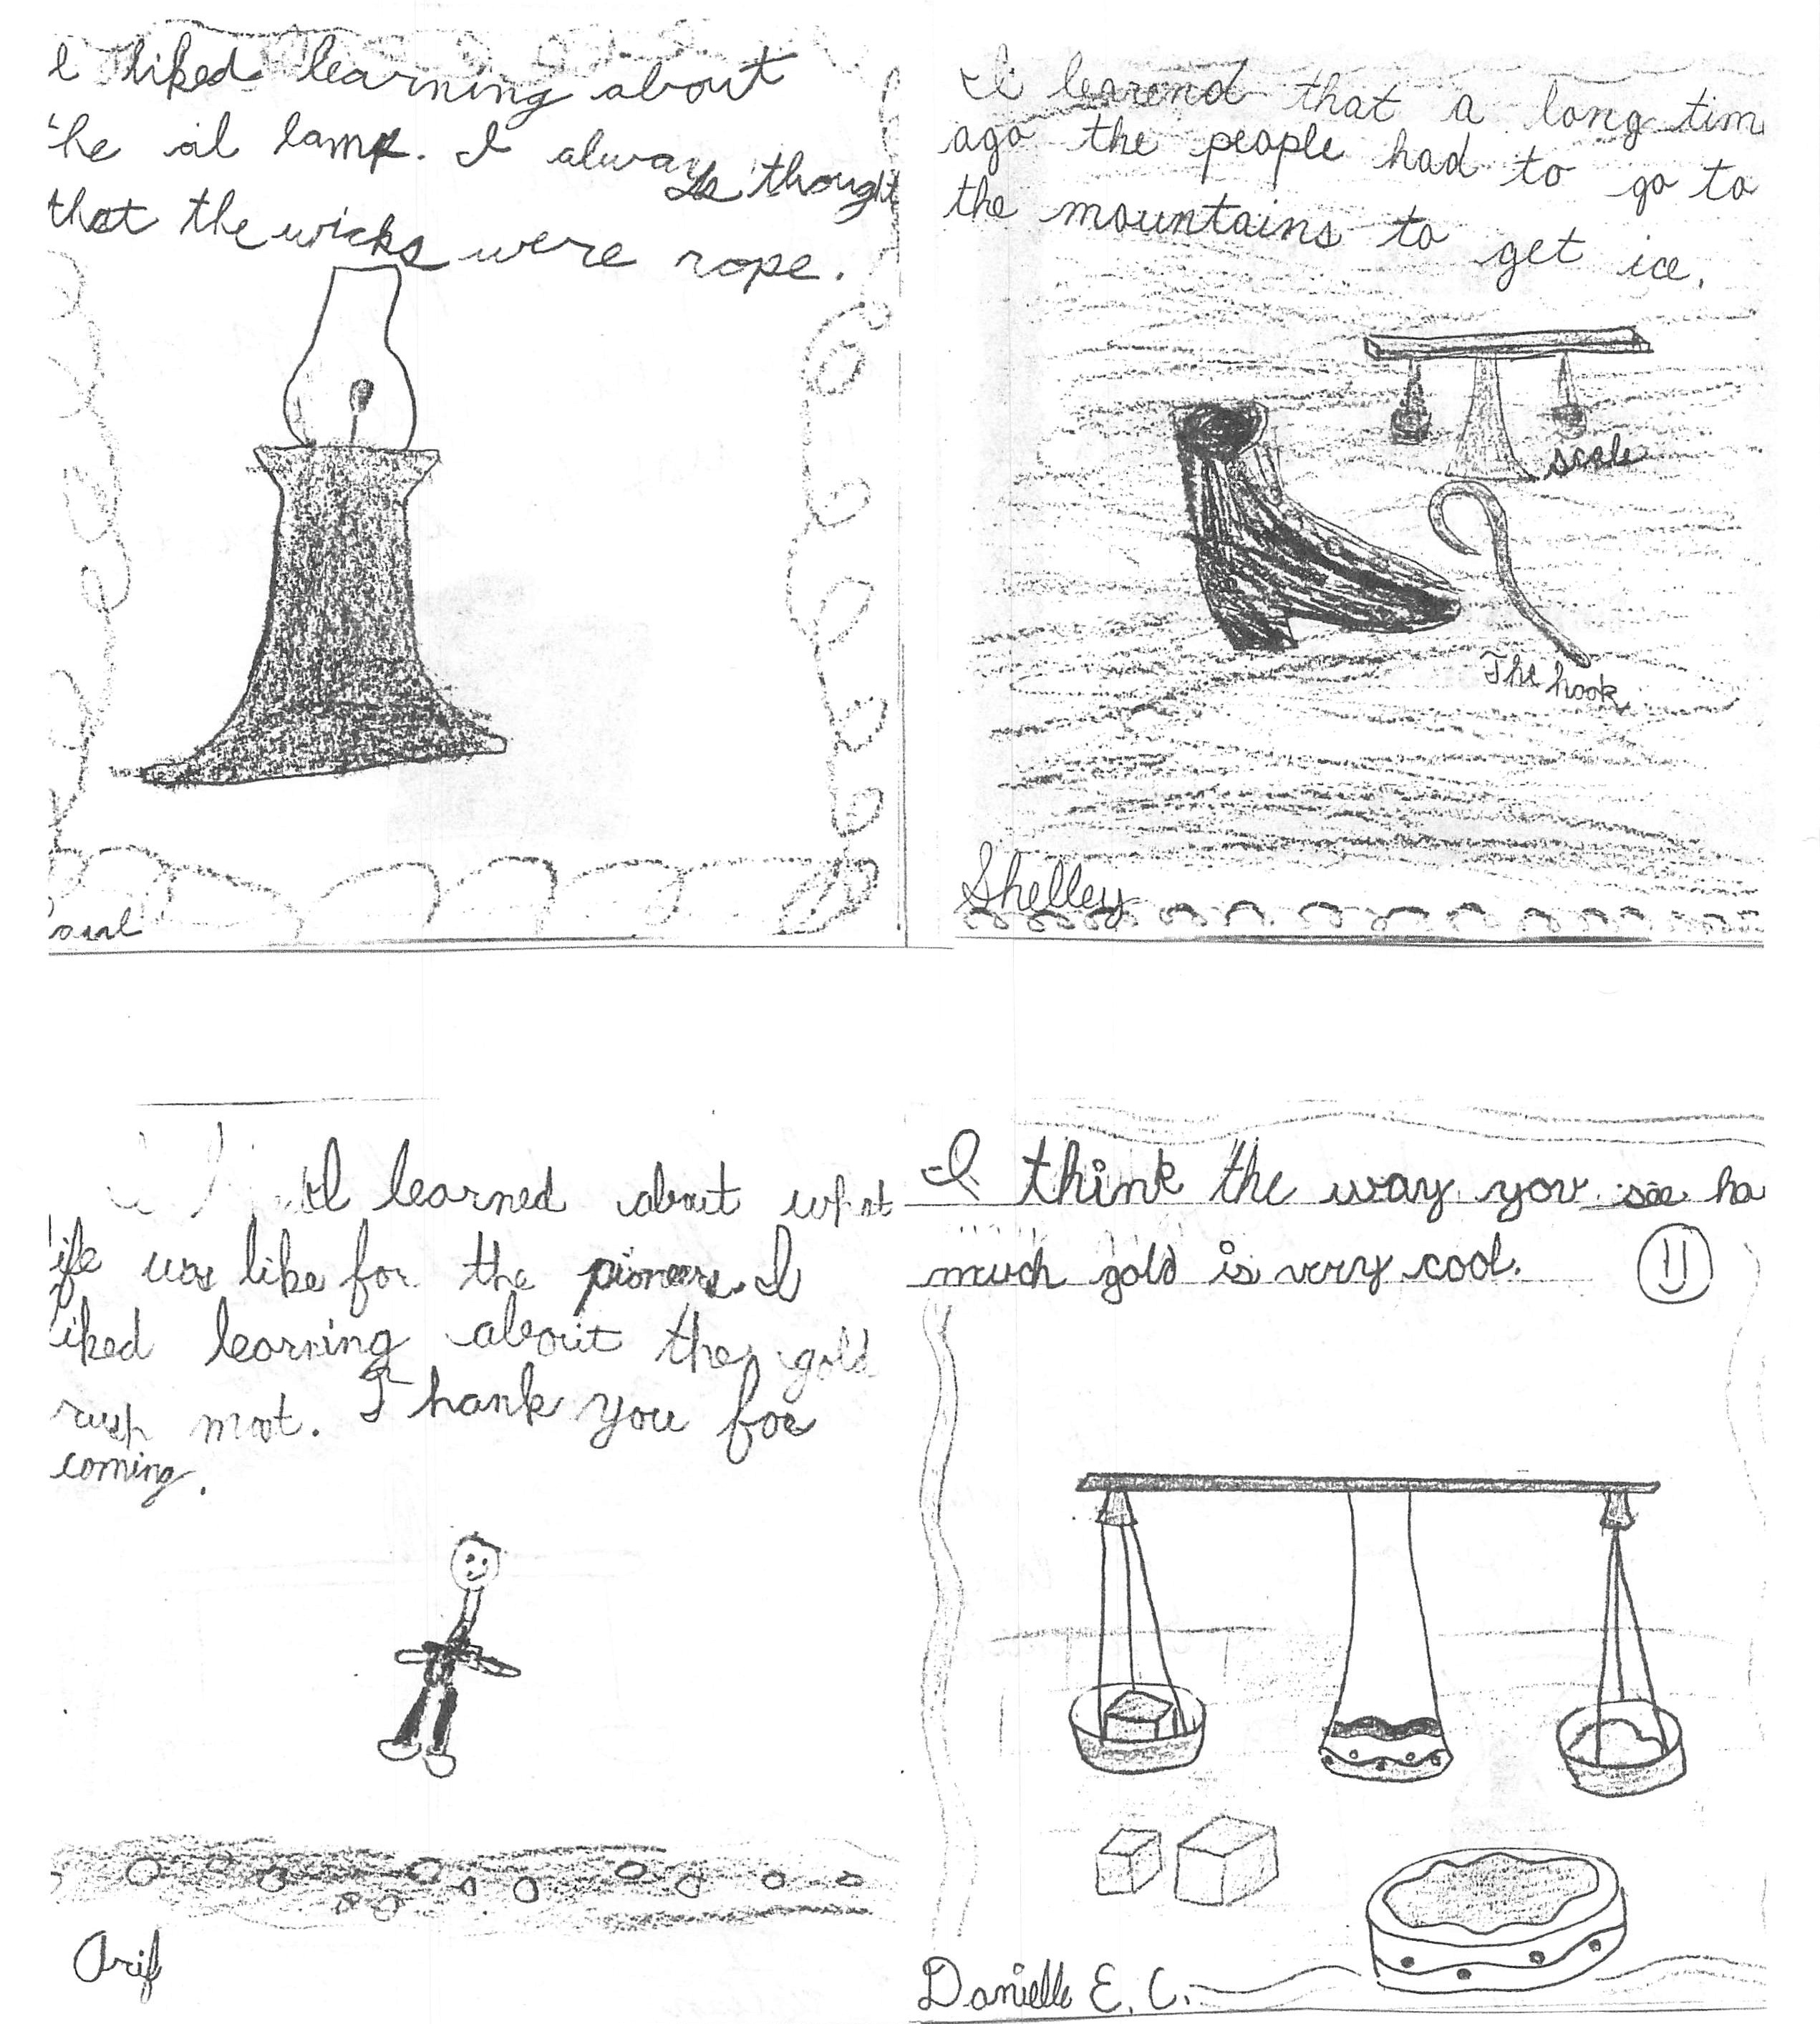 I liked learning about
the oil lamp. I always thought
that the wicks were rope.
I learend that a long tim
ago the people had to go to
the mountains to get ice.
scale
The hook
Shelley
I learned about what
life was like for the pioneers. I
liked learning about the gold
rush most. Thank you for
coming.
Arif
I think the way you see ho
much gold is very cool.
Danielle E. C.